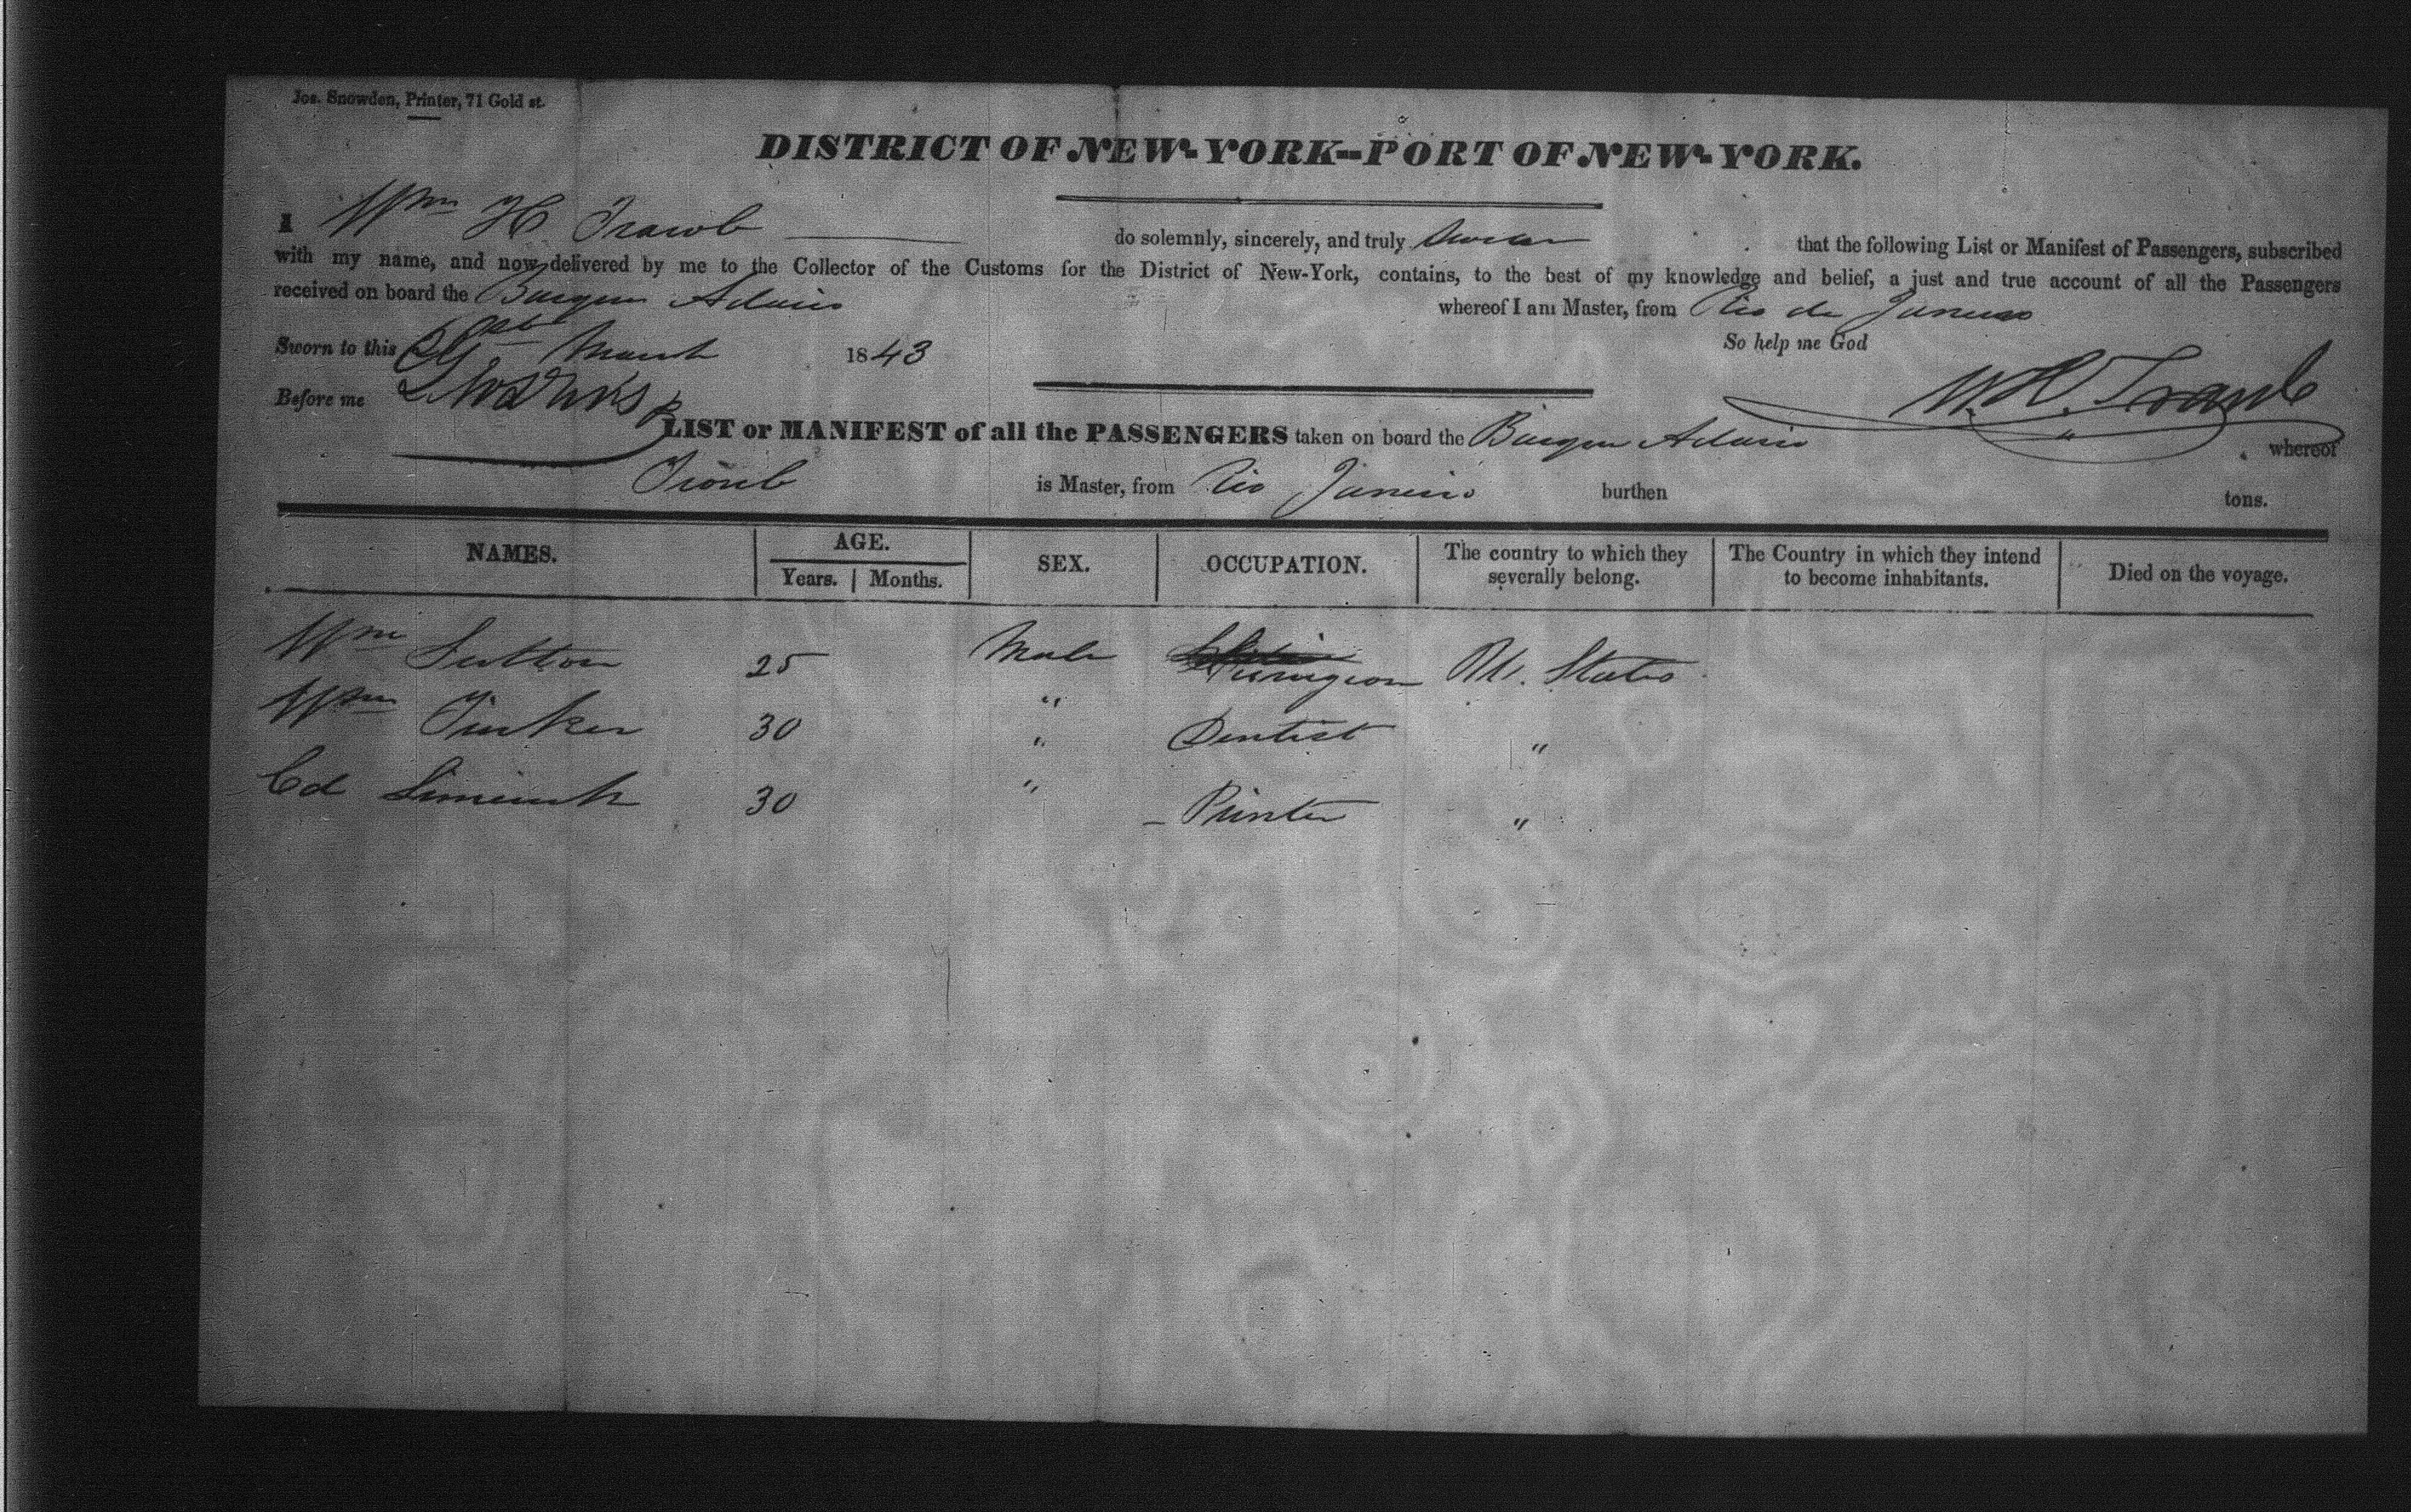 Jos. Snowden, Printer, 71 Gold st.
DISTRICT OF NEW-YORK--PORT OF NEW-YORK.
I Wm H do solemnly, sincerely, and truly swear that the following List or Manifest of Passengers, subscribed
with my name, and now delivered by me to the Collector of the Customs for the District of New-York, contains, to the best of my knowledge and belief, a just and true account of all the Passengers
received on board the Barque whereof I am Master, from Rio de Janeiro
Sworn to this March 1843 So help me God
Before me W. H.
LIST or MANIFEST of all the PASSENGERS taken on board the Barque whereof
is Master, from Rio Janeiro burthen tons.
NAMES. AGE. SEX. OCCUPATION. The country to which they severally belong. The Country in which they intend to become inhabitants. Died on the voyage.
Years. Months.
Wm Sutton 25 Male Surgeon U. States
Wm Tinker 30 " Dentist "
Ed 30 " Printer "